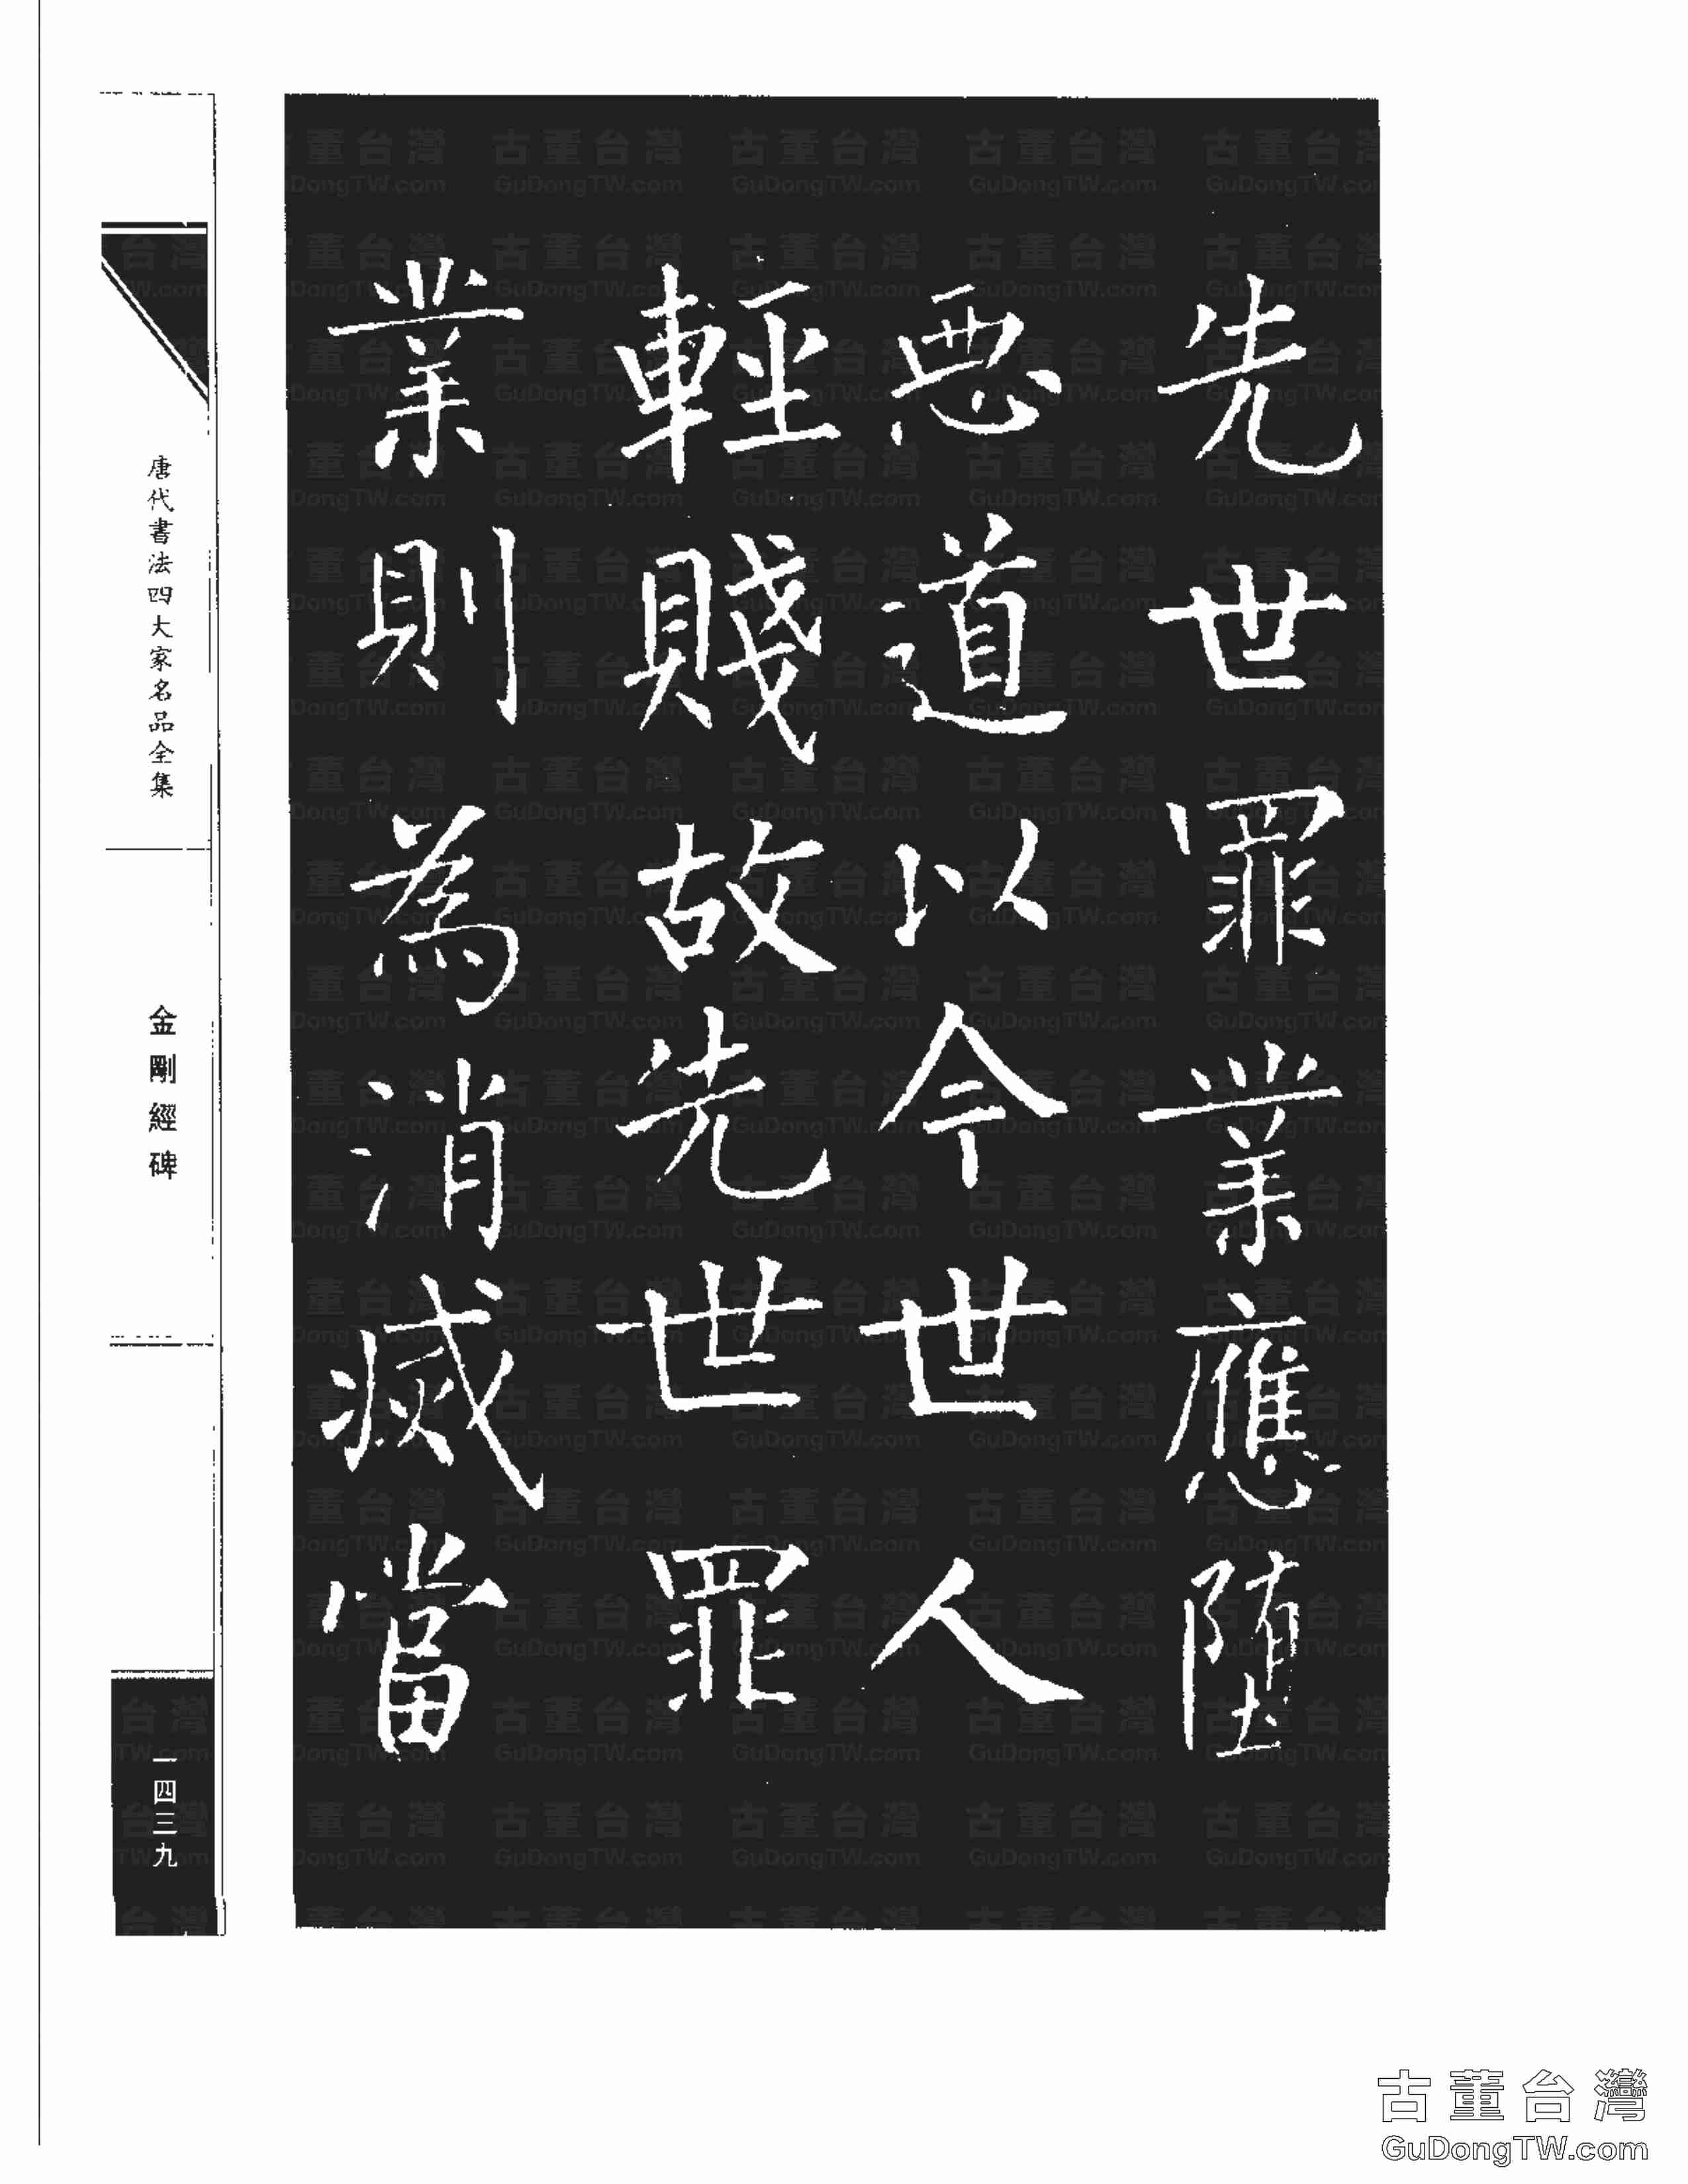 先世罪業應堕
惡道以今世人
輕賤故先世罪
業則為消滅當
唐代書法四大家名品全集
金剛經碑
一四三九
古董台灣
GuDongTW.com